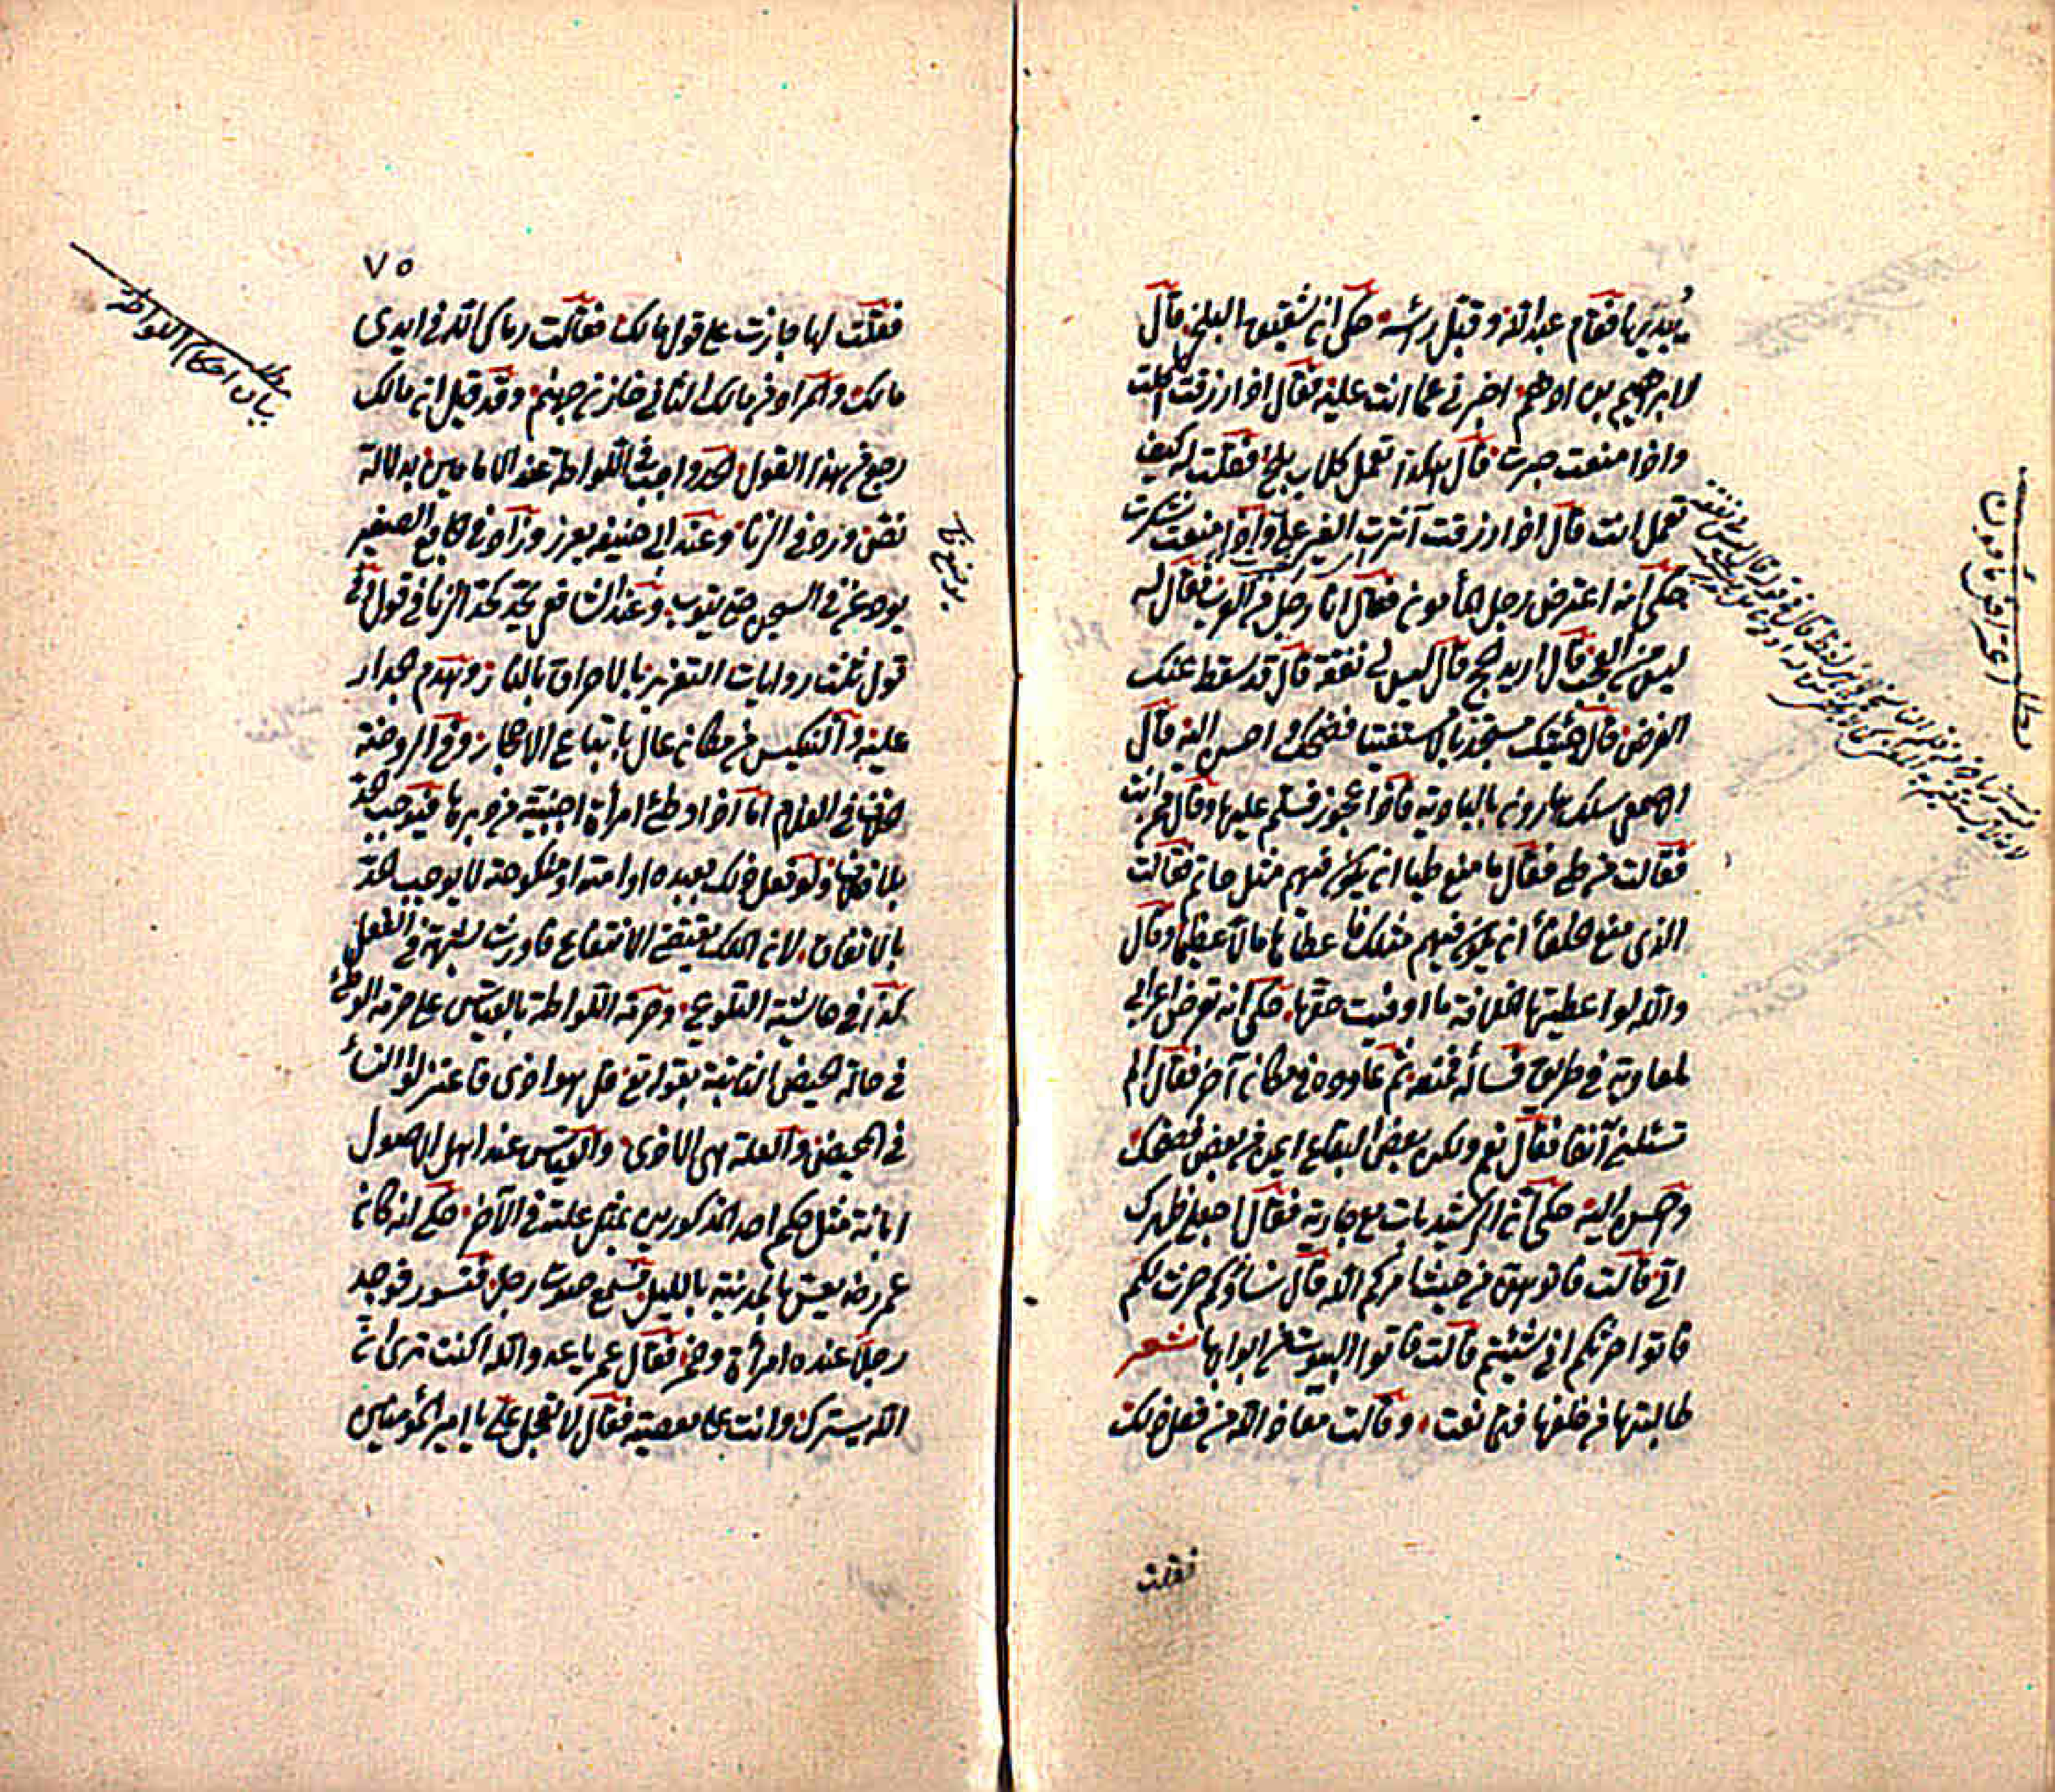 يديرها فقام عبد الله وقبل رأسه حكى ان شقيق البلخى قال
لابرهيم بن ادهم اخبرنى عما انت عليه فقال اذا رزقت اكلت
واذا منعت صبرت قال هكذا تعمل كلاب بلخ فقلت له كيف
تعمل انت قال اذا رزقت آثرت الغير على واذا منعت شكرت
حكى انه اعترض رجل المأمون فقال انا رجل من العرب فقال له
ليس من العجب قال اريد الحج قال ليس لى نفقة قال قد سقط عنك
الفرض قال جئتك مستجديا لا مستفتيا فضحك واحسن اليه قال
الاصمعى سلك هارون بالبادية فاذا عجوز فسلم عليها وقال ممن انت
فقالت من طى فقال ما منع طيا ان يكون فيهم مثل حاتم فقالت
الذى منع الخلفأ ان يكون فيهم مثلك فاعطاها مالا عظيما وقال
والله لو اعطيتها الخلافة ما اوفيت حقها حكى انه تعرض اعرابى
لمعاوية فى طريق فسأله فمنعه ثم عاوده فى مكان آخر فقال الم
تسئلنى آنفا فقال نعم ولكن بعض البقاع ايمن من بعض فضحك
واحسن اليه حكى ان الرشيد بات مع جارية فقال اجعلى ظهرك
الى قالت فاتوهن من حيث امركم الله قال نساؤكم حرث لكم
فاتوا حرثكم انى شئتم قالت فاتوا البيوت من ابوابها شعر
طالبتها من خلفها فتمانعت وقالت معاذ الله من فعل ذلك
فقلت
مطلب
اعتراض مأمون
٧٥
فقلت لها جازت على قول مالك فقالت رماك الله فى ايدى
مالك والمراد من مالك الثانى خازن جهنم وقد قيل ان مالك
رجع من هذا القول الحد واجب فى اللواطة عند الامامين بدلالة
نص ورد فى الزنا وعند ابى حنيفه يعزر وزاد فى الجامع الصغير
يودع فى السجن حتى يتوب وعند الشافعى يحد بحد الزنا فى قول وفى
قول يقتل روايات التعزير بالاحراق بالنار وهدم الجدار
عليه والتنكيس من مكان عال باتباع الاحجار وفى الروضة
الخلاف فى الغلام اما اذا وطئ امرأة اجنبية من دبرها فيوجب الحد
بلا خلاف ولو فعل ذلك بعبده او امته او منكوحته لا يوجب الحد
بالاتفاق لان الملك يقتضى الانتفاع فاورث شبهة فى الفعل
كذا فى حاشية التلويح وحرمة اللواطة بالقياس على حرمة الوطئ
فى حالة الحيض الثابتة بقوله تع قل هو اذى فاعتزلوا النسأ
فى المحيض والعلة هى الاذى والقياس عند اهل الاصول
ابانة مثل حكم احد المذكورين بمثل علته فى الآخر حكى انه كان
عمر رضه يعس بالمدينة بالليل فسمع صوت رجل فتسور فوجد
رجلا عنده امرأة وخمر فقال عمر يا عدو الله اكنت ترى ان
الله يسترك وانت على معصية فقال لا تعجل على يا امير المؤمنين
مطلب
بيان احكام اللواطه